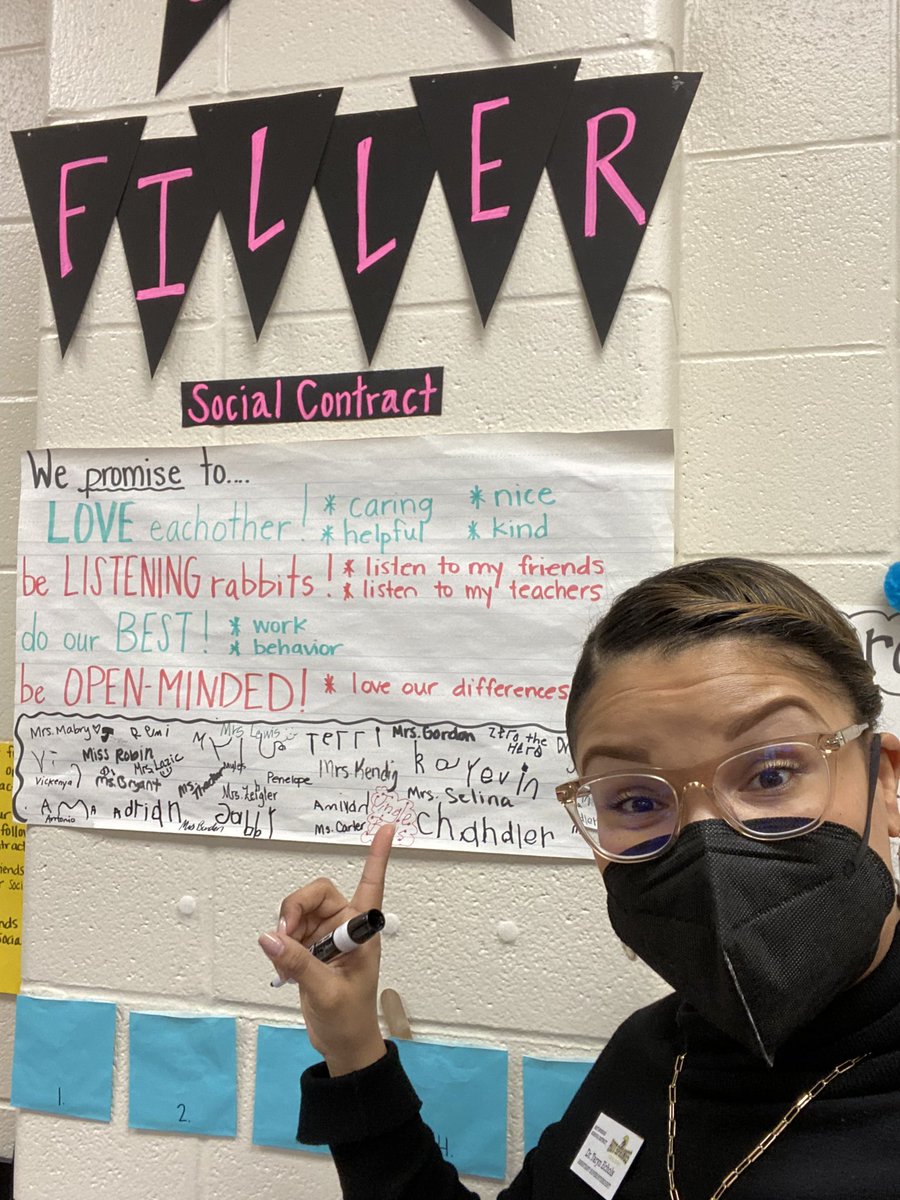 FILLER
Social Contract
We promise to....
LOVE eachother! * caring * nice
* helpful * kind
be LISTENING rabbits! * listen to my friends
* listen to my teachers
do our BEST! * work
* behavior
be OPEN-MINDED! * love our differences
Mrs. Mabry Remi Mrs. Lewis Terri Mrs. Gordon Zero the Hero
Vi Miss Robin Mrs. Lazic Mrs. Kendig Karevin
Vickenya Ms. Bryant Penelope
Mrs. Zeigler Mrs. Selina
AMA Adrian Gabby Amiyah Chandler
Antonio Ms. Carter
follow
friends
Social
1.
2.
4.